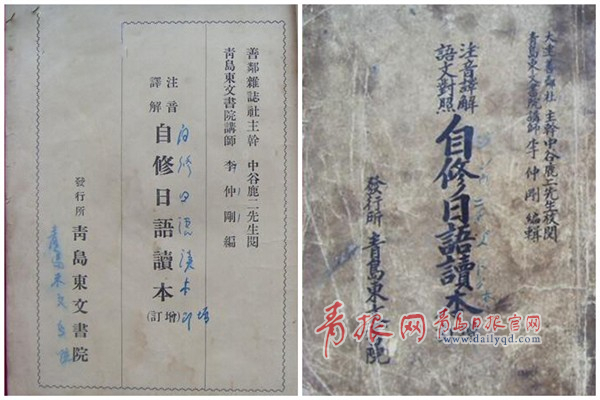 善鄰雜誌社主幹 中谷鹿二先生閱
青島東文書院講師 李仲剛編
注音
譯解
自修日語讀本(增訂)
發行所 青島東文書院
大連善鄰社 主幹中谷鹿二先生校閱
青島東文書院講師李仲剛編輯
注音譯解
語文對照
自修日語讀本
發行所 青島東文書院
青报网 青岛日报官网
www.dailyqd.com